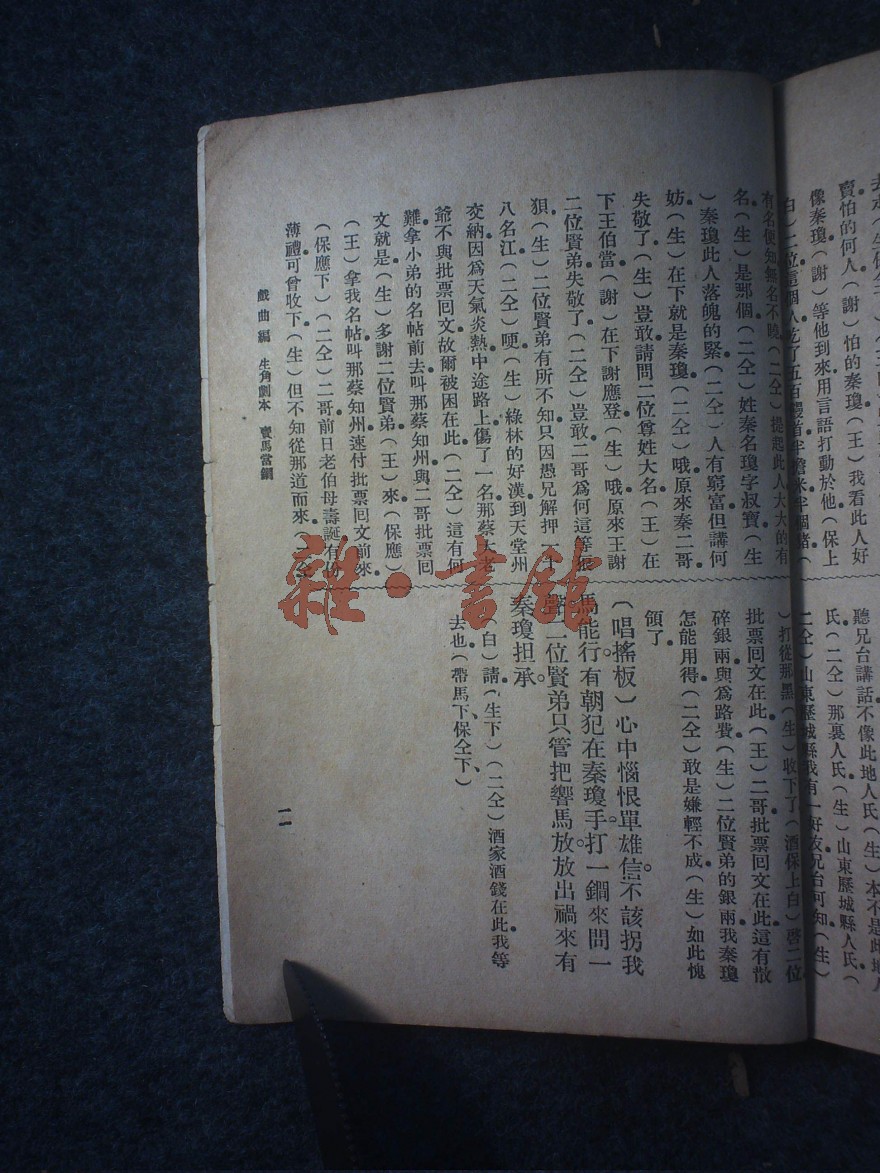 賣怕的何人（謝）怕的秦瓊（王）我看此人好
像秦瓊（謝）等他到來用言語打動於他（保上
有名便知無名不曉（二仝）提起此人大大的有
名（生）是那個（二仝）姓秦名瓊字叔寶（生
）秦瓊此人落魄的緊（二仝）人有窮富但講何
妨（生）在下就是秦瓊（二仝）哦原來秦二哥
失敬了（生）豈敢請問二位尊姓大名（王）在
下王伯當（謝）在下謝應登（生）哦原來王謝
二位賢弟失敬了（二仝）豈敢二哥爲何這等狼
狽（生）二位賢弟有所不知只因愚兄解押一十
八名江（二仝）哽（生）綠林的好漢到天堂州
交納因爲天氣炎熱中途路上傷了一名那蔡大老
爺不與批票囘文故爾被困在此（二仝）這有何
難拿小弟的名帖前去叫那蔡知州與二哥批票囘
文就是（生）多謝二位賢弟（王）來（保應）
（王）拿我名帖叫那蔡知州速付批票囘文前來
（保應下）（二仝）二哥前日老伯母壽誕有份
薄禮可曾收下（生）但不知從那道而來（二仝
聽兄台講話不像此地人氏（生）本不是此地人
氏（二仝）那裏人氏（生）山東歷城縣人氏（
二仝）山東歷城縣我有一好友兄台可知（生）
）打從那黑（生）收下了（酒保上白）啓二位
批票囘文在此（王）二哥批票囘文在此這有散
碎銀兩與爲路費（生）二位賢弟的銀兩我秦瓊
怎能用得（二仝）敢是嫌輕不成（生）如此愧
領了
（唱搖板）心中惱恨單雄信不該拐我
馬能行有朝犯在秦瓊手打一鐧來問一
聲二位賢弟只管把響馬放放出禍來有
秦瓊担承
（白）請（生下）（二仝）酒家酒錢在此我等
去也（帶馬下保仝下）
戲曲編　生角劇本　賣馬當鐧
一一
雜·書館